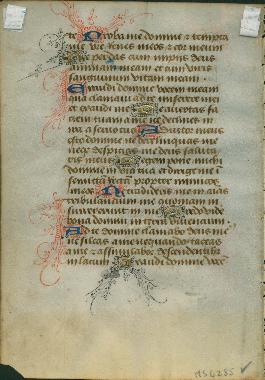 te Proba me domine et tempta
me ure renes meos et cor meum
Ne perdas cum impiis deus
animam meam et cum viris
sanguinum vitam meam
Exaudi domine vocem meam
qua clamavi ad te miserere mei
et exaudi me Ne avertas fa
ciem tuam a me ne declines in
ira a servo tuo Adiutor meus
esto domine ne derelinquas me
neque despicias me deus saluta
ris meus Legem pone michi
domine in via tua et dirige me i
semita recta propter inimicos
meos Ne tradideris me in aĩas
tribulantium me quoniam
insurrexerunt in me Credo vide
bona domini in terra viventium
Ad te domine clamabo deus me
ne sileas a me nequando taceas
a me et assimilabor descendentibus
in lacum Exaudi domine voce
MS 6285